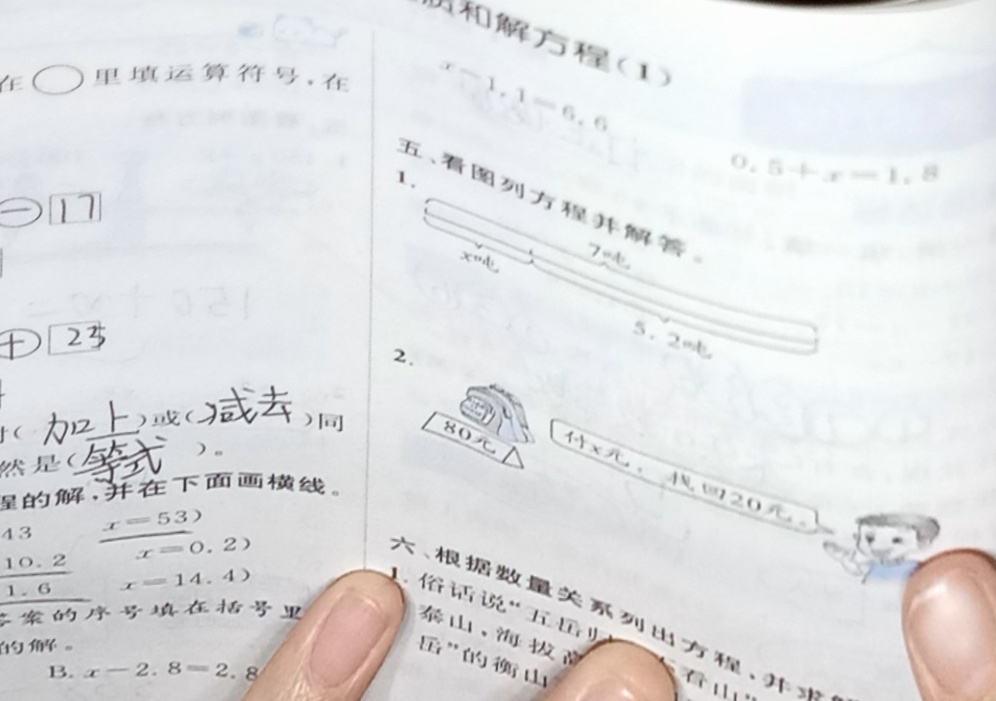 在 ○ 里填运算符号,在
− 17
+ 23
( 加上 )或( 减去 )同
然是( 等式 )。
程的解,并在下面画横线。
43 x=53)
10.2 x=0.2)
1.6 x=14.4)
答案的序号填在括号里
的解。
B. x−2.8=2.8
质和解方程(1)
x−1.1=6.6
0.5+x=1.8
五、看图列方程并解答。
1.
7吨
x吨
5.2吨
2.
80元
付x元,找回20元。
六、根据数量关系列出方程,并求解
1. 俗话说“五岳归 看山”
泰山,海拔高
岳”的衡山